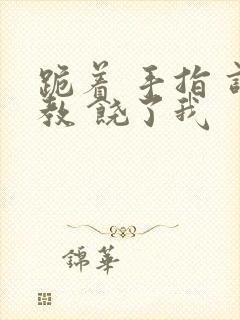 跪着 手指 
教 饶了我
錦華